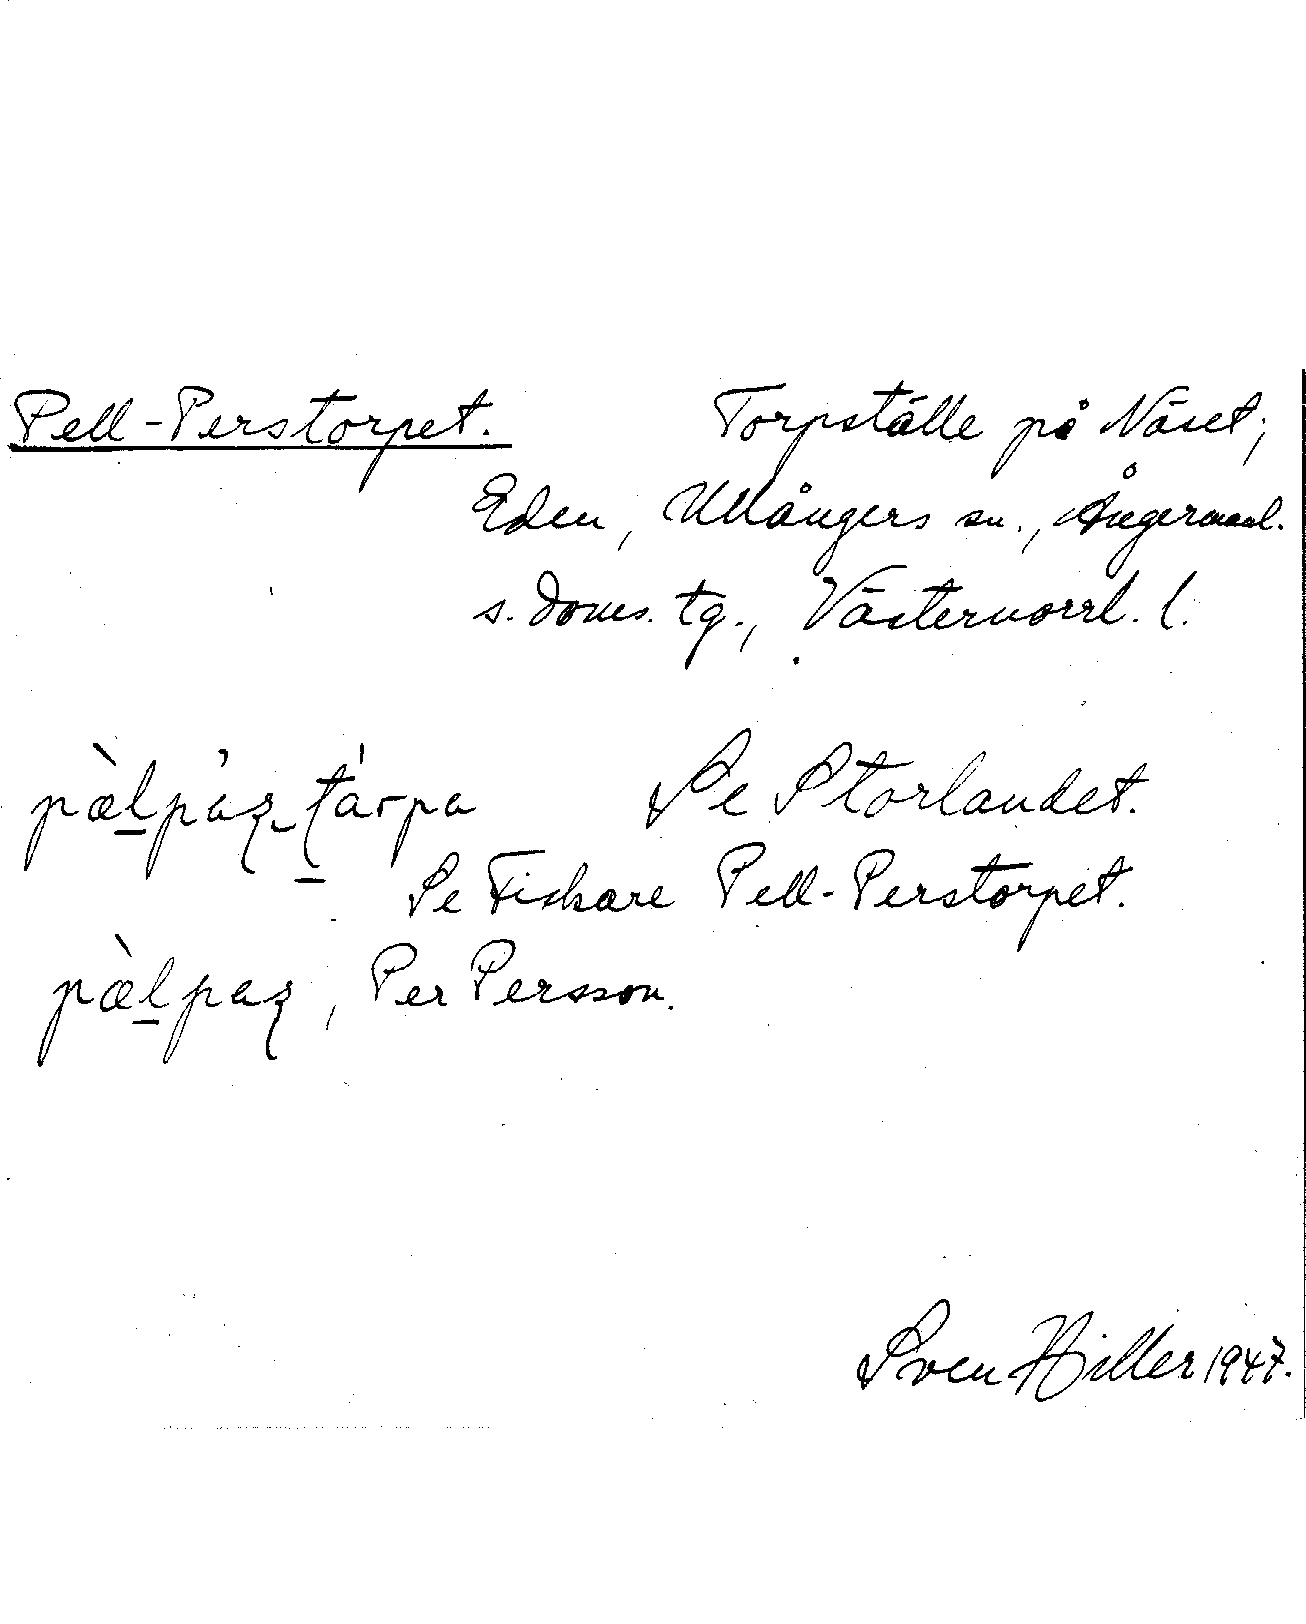 Pell-Perstorpet. Torpställe på Näset,
Eden, Ullångers sn., Ångermanl.
s. doms. tg., Västernorrl. l.
Se Storlandet.
Se Fiskare Pell-Perstorpet.
pæ̀l̠paʂ, Per Persson.
Sven Hiller 1947.